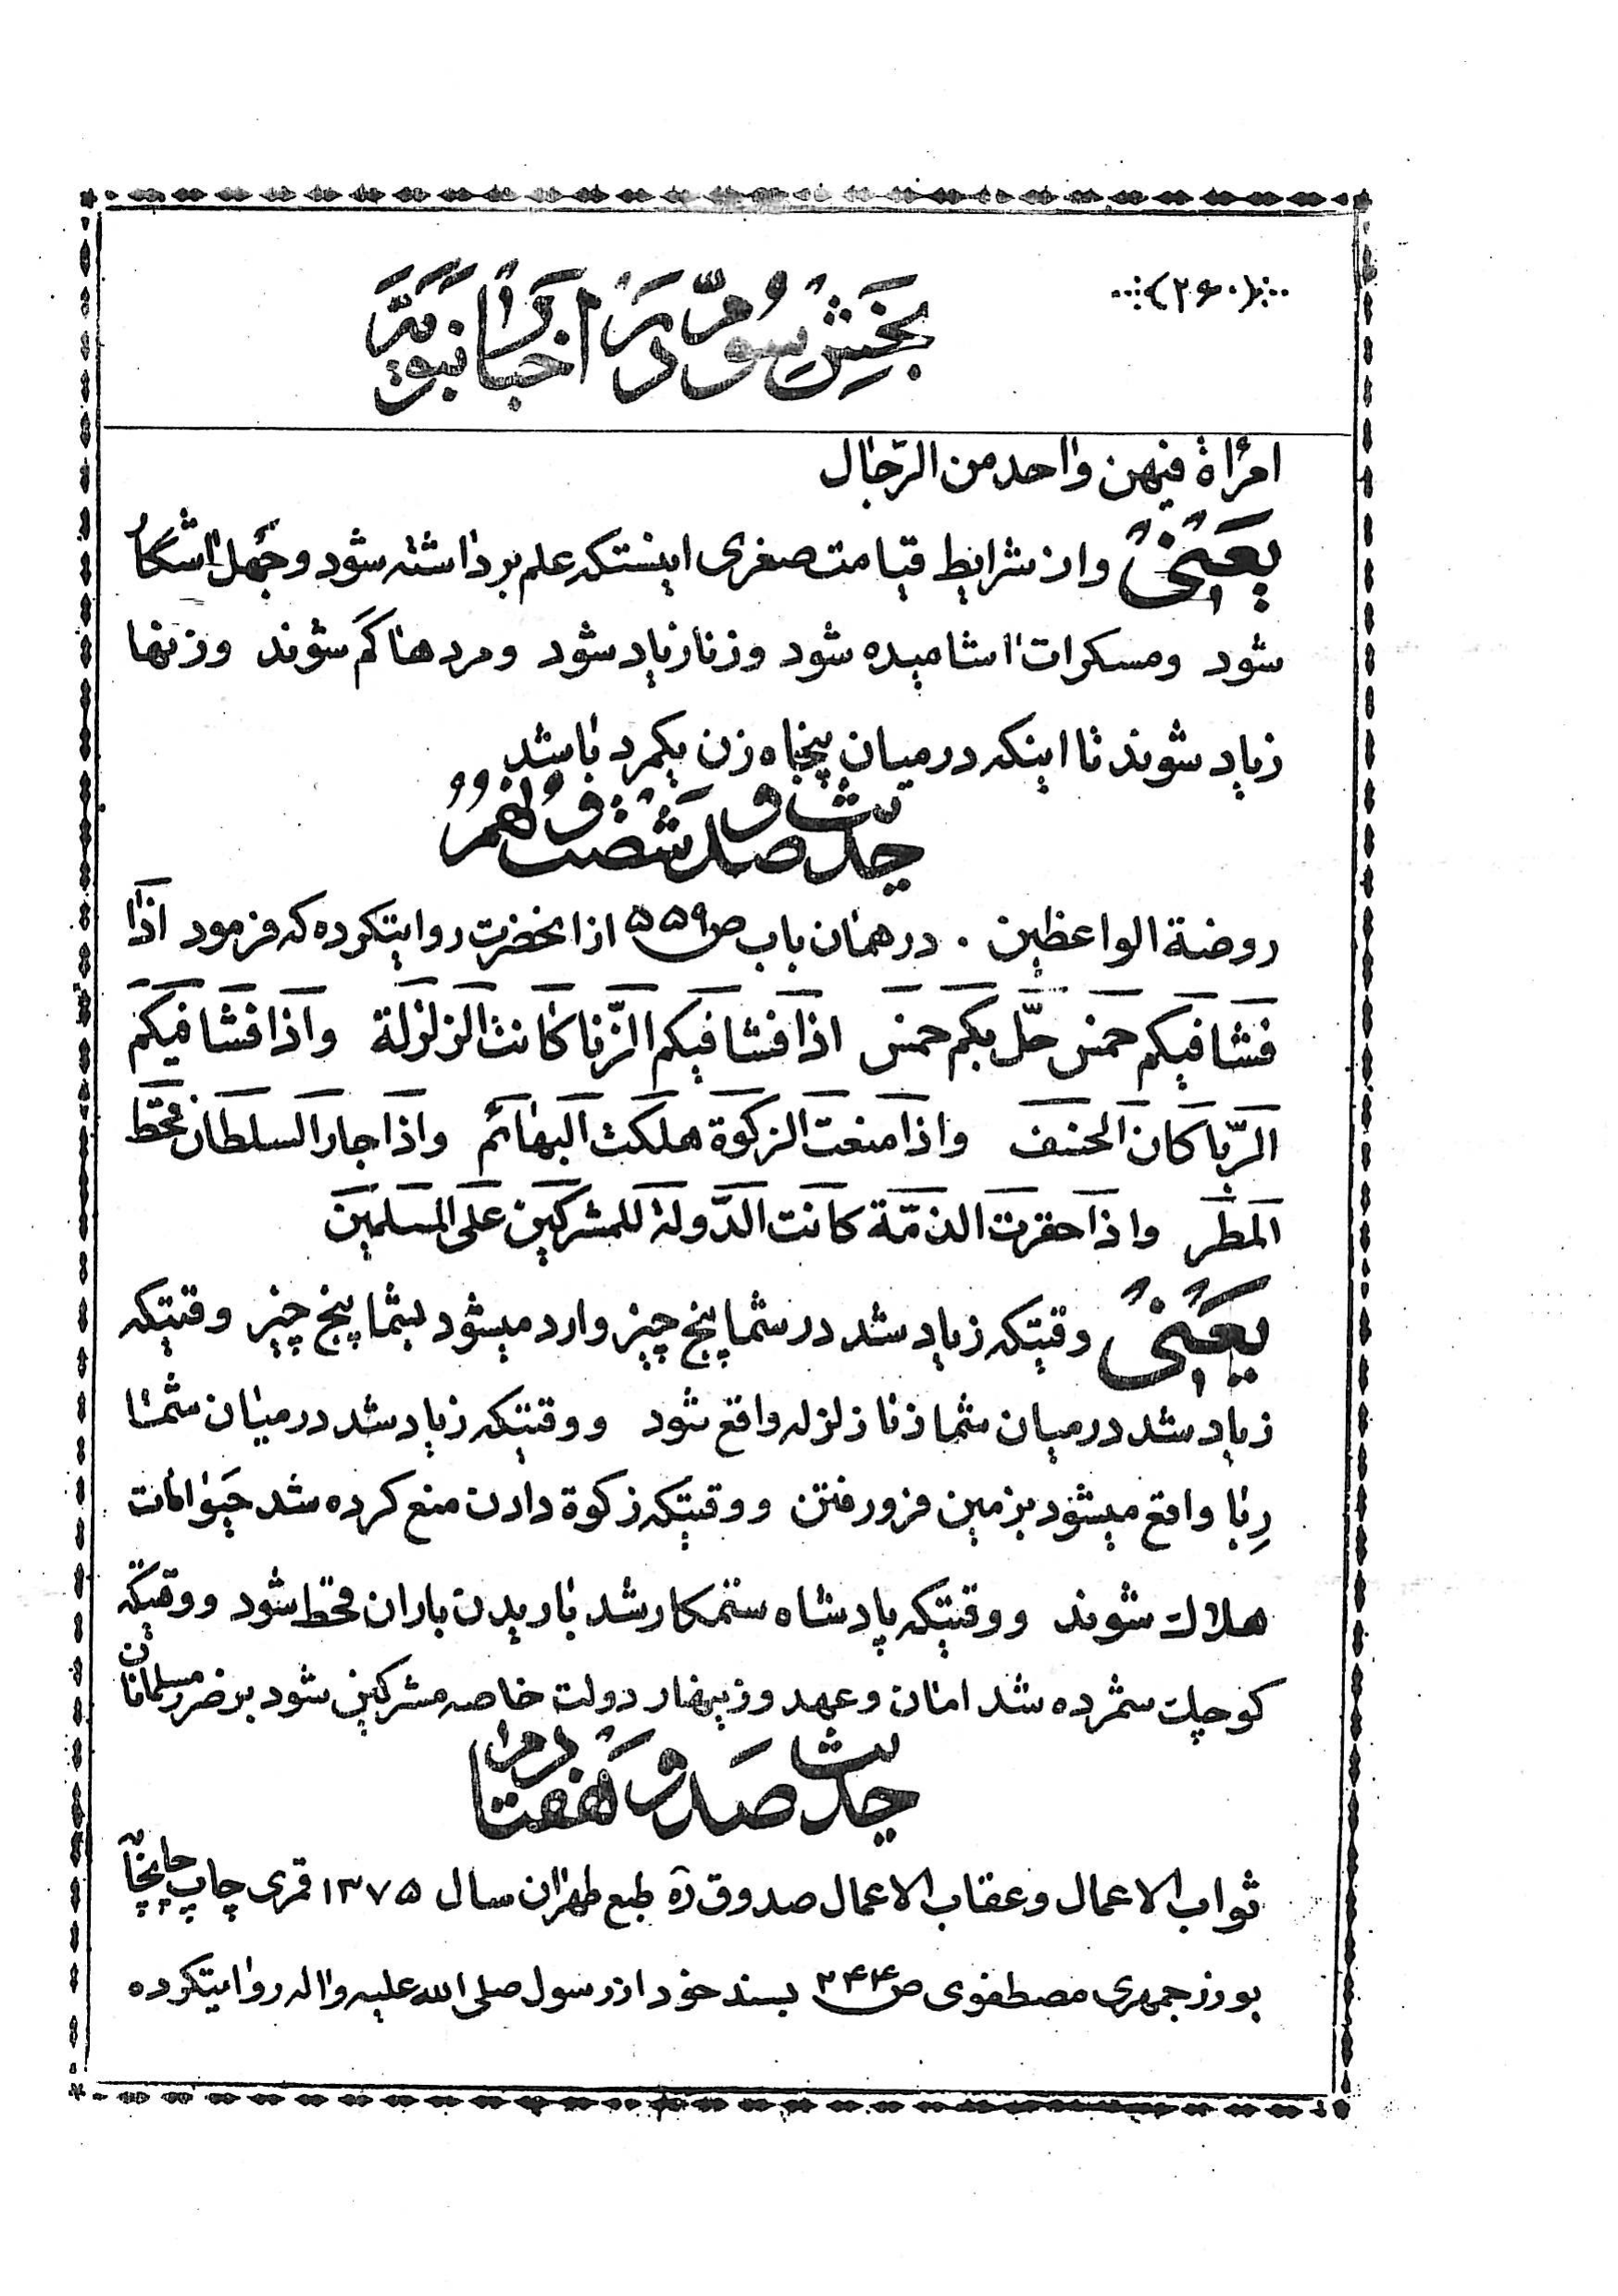 (۲۶۰)
بخش سوّم در اخبار نبویّه
امرأة فیهن واحد من الرّجال
یعنی و از شرایط قیامت صغری اینستکه علم برداشته شود و جهل اشکار
شود و مسکرات اشامیده شود و زنا زیاد شود و مردها کم شوند و زنها
زیاد شوند تا اینکه در میان پنجاه زن یکمرد باشد
حدیث صد و شصت و نهم
روضة الواعظین . در همان باب ص ۵۵۹ از انحضرت روایتکرده که فرمود اذا
فشا فیکم خمس حلّ بکم خمس اذا فشا فیکم الزّنا کانت الزلزلة و اذا فشا فیکم
الرّبا کان الخسف و اذا منعت الزکوة هلکت البهائم و اذا جار السلطان قحط
المطر و اذا حقرت الذمّة کانت الدّولة للمشرکین علی المسلمین
یعنی وقتیکه زیاد شد در شما پنج چیز وارد میشود بشما پنج چیز وقتیکه
زیاد شد در میان شما زنا زلزله واقع شود و وقتیکه زیاد شد در میان شما
رِبا واقع میشود بزمین فرو رفتن و وقتیکه زکوة دادن منع کرده شد حیوانات
هلاک شوند و وقتیکه پادشاه ستمکار شد باریدن باران قحط شود و وقتیکه
کوچک شمرده شد امان و عهد و زینهار دولت خاصه مشرکین شود بر ضرر مسلمانان
حدیث صد و هفتادم
ثواب الاعمال و عقاب الاعمال صدوق ره طبع طهران سال ۱۳۷۵ قمری چاپ چاپخانه
بوذرجمهری مصطفوی ص ۲۴۴ بسند خود از رسول صلی الله علیه واله روایتکرده